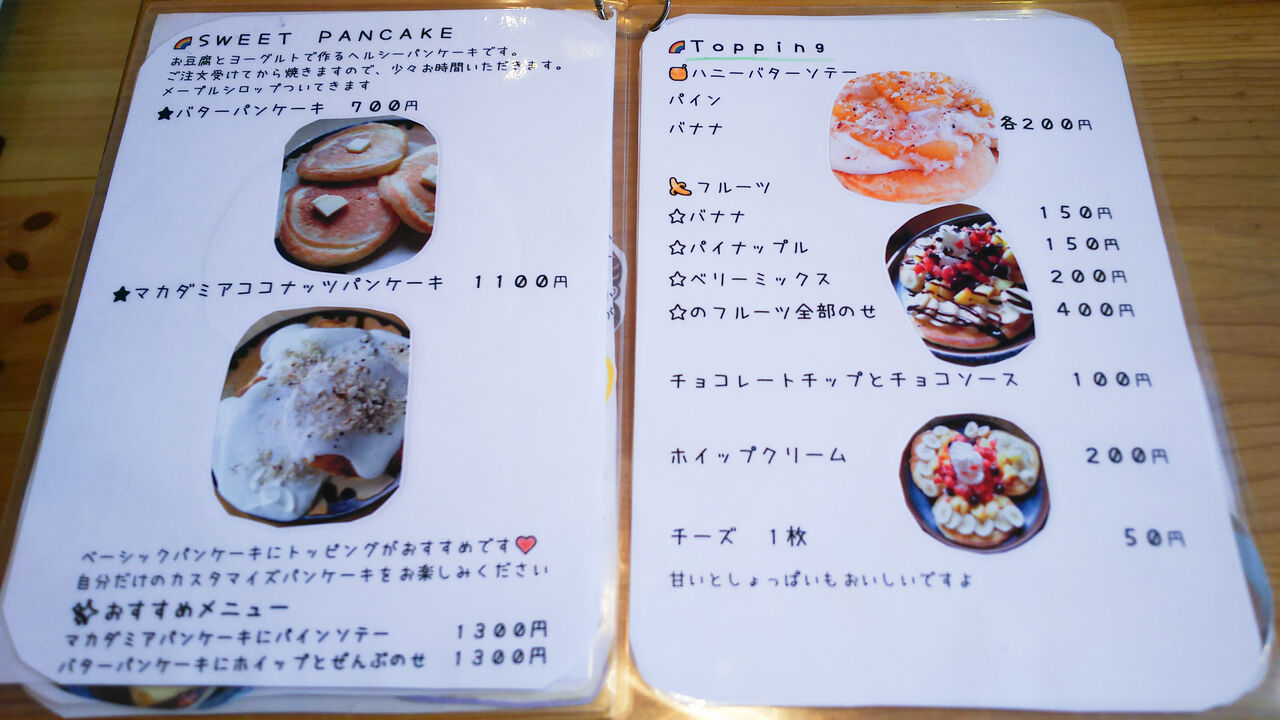 SWEET PANCAKE
お豆腐とヨーグルトで作るヘルシーパンケーキです。
ご注文受けてから焼きますので、少々お時間いただきます。
メープルシロップついてきます
★バターパンケーキ 700円
★マカダミアココナッツパンケーキ 1100円
ベーシックパンケーキにトッピングがおすすめです❤
自分だけのカスタマイズパンケーキをお楽しみください
おすすめメニュー
マカダミアパンケーキにパインソテー 1300円
バターパンケーキにホイップとぜんぶのせ 1300円
Topping
ハニーバターソテー
パイン
バナナ 各200円
フルーツ
☆バナナ 150円
☆パイナップル 150円
☆ベリーミックス 200円
☆のフルーツ全部のせ 400円
チョコレートチップとチョコソース 100円
ホイップクリーム 200円
チーズ 1枚 50円
甘いとしょっぱいもおいしいですよ